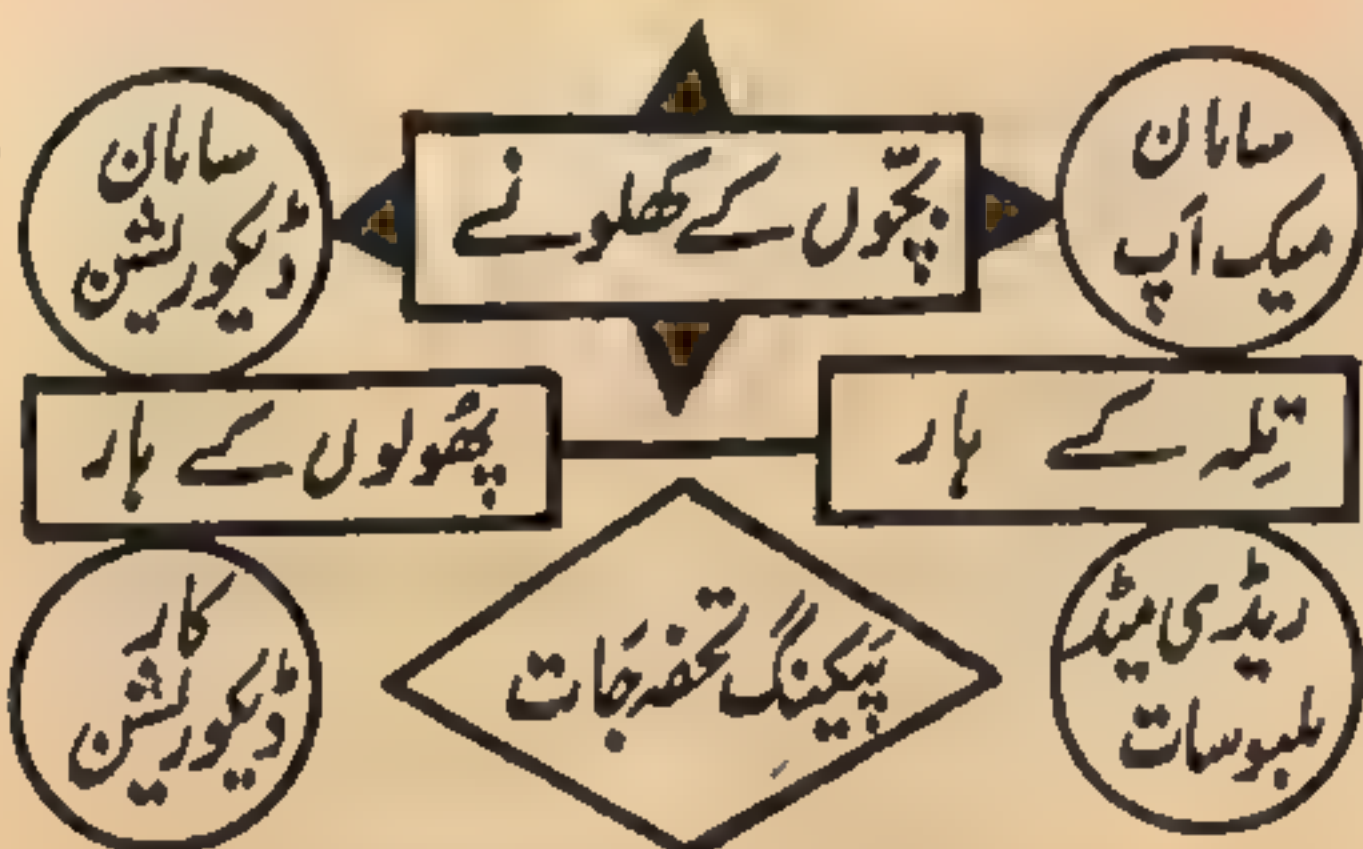 سامان
میک اَپ
بچّوں کے کھلونے
سامان
ڈیکوریشن
تِلہ کے ہار
پھُولوں کے ہار
ریڈی میڈ
ملبوسات
پَیکنِگ تحفہ جَات
کار
ڈیکوریشن